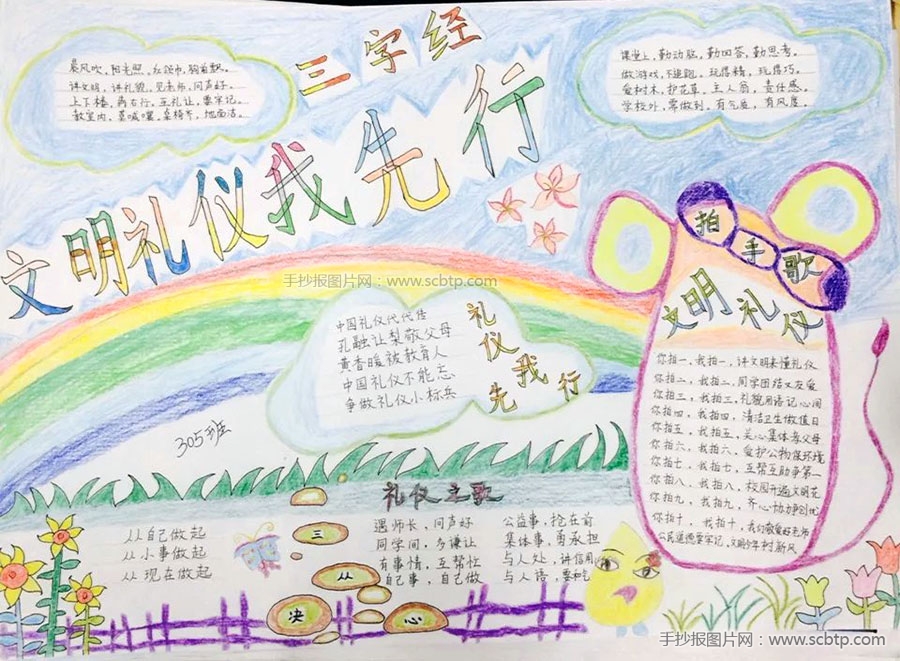 三字经
文明礼仪我先行
晨风吹,阳光照,红领巾,胸前飘。
讲文明,讲礼貌,见老师,问声好。
上下楼,靠右行,互礼让,要牢记。
教室内,莫喊嚷,桌椅齐,地面洁。
课堂上,勤动脑,勤回答,勤思考。
做游戏,不追跑,玩得精,玩得巧。
爱树木,护花草,主人翁,责任感。
学校外,需做到,有气质,有风度。
手抄报图片网:www.scbtp.com
中国礼仪代代传
孔融让梨敬父母
黄香暖被教育人
中国礼仪不能忘
争做礼仪小标兵
礼仪我先行
305班
拍手歌
文明礼仪
你拍一,我拍一,讲文明来懂礼仪
你拍二,我拍二,同学团结又友爱
你拍三,我拍三,礼貌用语记心间
你拍四,我拍四,清洁卫生做值日
你拍五,我拍五,关心集体孝父母
你拍六,我拍六,爱护公物保环境
你拍七,我拍七,互帮互助争第一
你拍八,我拍八,校园开遍文明花
你拍九,我拍九,齐心协力争创优
你拍十,我拍十,我们敬爱好老师
公民道德要牢记,文明少年树新风
礼仪之歌
从自己做起
从小事做起
从现在做起
三
从
决
心
遇师长,问声好
同学间,多谦让
有事情,互帮忙
自己事,自己做
公益事,抢在前
集体事,勇承担
与人处,讲信用
与人语,要和气
手抄报图片网:www.scbtp.com